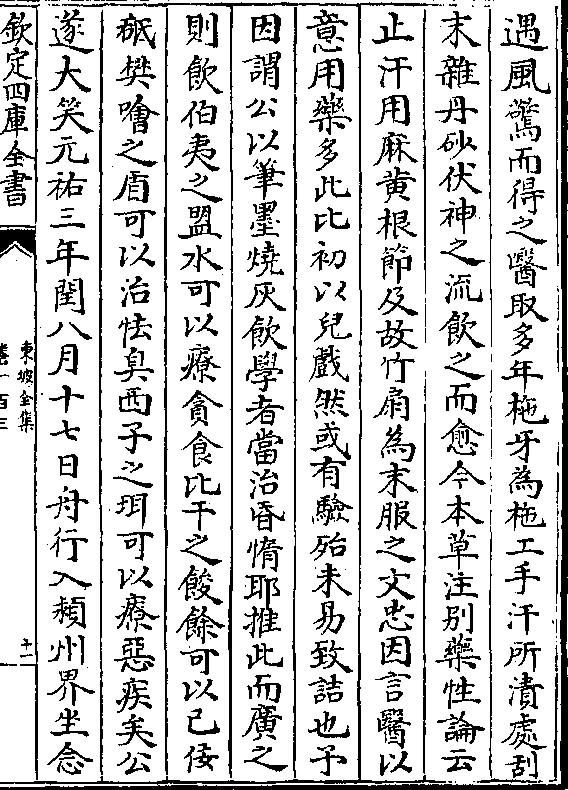 遇風驚而得之醫取多年柂牙為柂工手汗所漬處刮
末雜丹砂伏神之流飲之而愈今本草注别藥性論云
止汗用麻黄根節及故竹扇為末服之文忠因言醫以
意用藥多此比初以兒戲然或有驗殆未易致詰也予
因謂公以筆墨燒灰飲學者當治昏惰耶推此而廣之
則飲伯夷之盥水可以療貪食比干之餕餘可以已佞
䑛樊噲之盾可以治怯臭西子之珥可以療惡疾矣公
遂大笑元祐三年閏八月十七日舟行入潁州界坐念
欽定四庫全書
東坡全集
卷一百三
十二